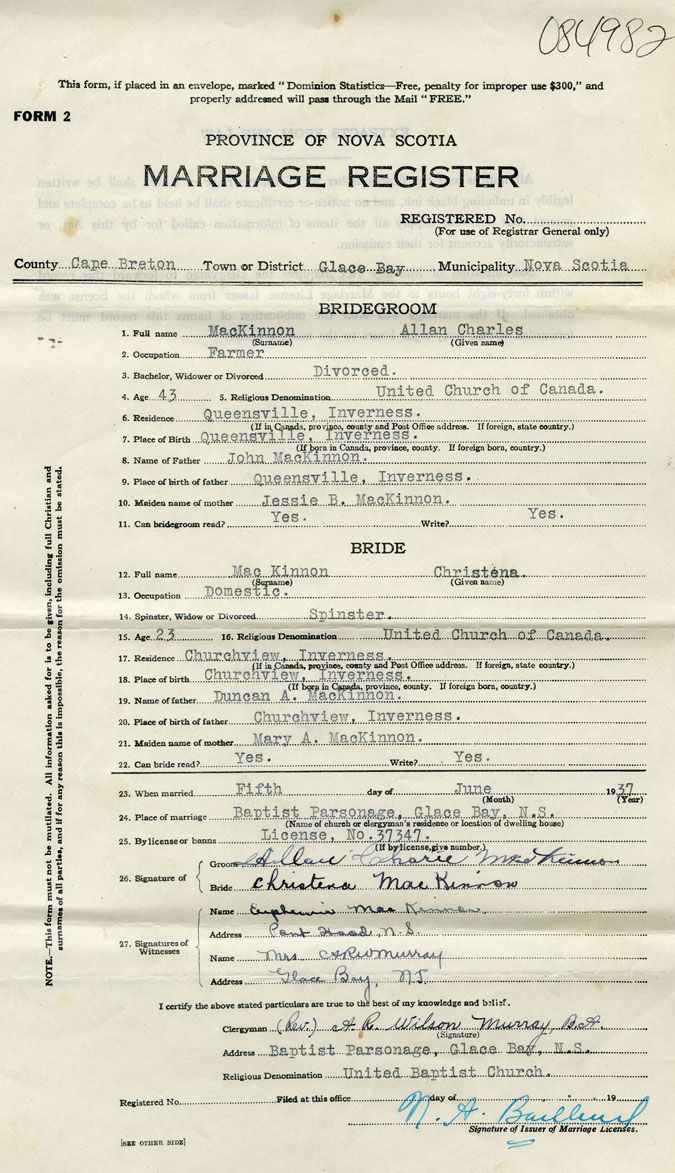 084982
This form, if placed in an envelope, marked "Dominion Statistics—Free, penalty for improper use $300," and
properly addressed will pass through the Mail "FREE."
FORM 2
PROVINCE OF NOVA SCOTIA
MARRIAGE REGISTER
REGISTERED No.
(For use of Registrar General only)
County Cape Breton Town or District Glace Bay Municipality Nova Scotia
BRIDEGROOM
1. Full name MacKinnon Allan Charles
(Surname) (Given name)
2. Occupation Farmer
3. Bachelor, Widower or Divorced Divorced.
4. Age 43 5. Religious Denomination United Church of Canada.
6. Residence Queensville, Inverness.
(If in Canada, province, county and Post Office address. If foreign, state country.)
7. Place of Birth Queensville, Inverness.
(If born in Canada, province, county. If foreign born, country.)
8. Name of Father John MacKinnon.
9. Place of birth of father Queensville, Inverness.
10. Maiden name of mother Jessie B. MacKinnon.
11. Can bridegroom read? Yes. Write? Yes.
BRIDE
12. Full name Mac Kinnon Christena.
(Surname) (Given name)
13. Occupation Domestic.
14. Spinster, Widow or Divorced Spinster.
15. Age 23 16. Religious Denomination United Church of Canada.
17. Residence Churchview, Inverness.
(If in Canada, province, county and Post Office address. If foreign, state country.)
18. Place of birth Churchview, Inverness.
(If born in Canada, province, county. If foreign born, country.)
19. Name of father Duncan A. MacKinnon.
20. Place of birth of father Churchview, Inverness.
21. Maiden name of mother Mary A. MacKinnon.
22. Can bride read? Yes. Write? Yes.
23. When married Fifth day of June 1937
(Month) (Year)
24. Place of marriage Baptist Parsonage, Glace Bay, N.S.
(Name of church or clergyman's residence or location of dwelling house)
25. By license or banns License, No.37347.
(If by license, give number.)
26. Signature of
Groom Allan Charlie MacKinnon
Bride Christena MacKinnon
27. Signatures of Witnesses
Name Euphemia MacKinnon,
Address Port Hood, N.S.
Name Mrs. Murray
Address Glace Bay, N.S.
I certify the above stated particulars are true to the best of my knowledge and belief.
Clergyman (Rev.) A. R. Wilson Murray, B.A.
(Signature)
Address Baptist Parsonage, Glace Bay, N.S.
Religious Denomination United Baptist Church.
Registered No. Filed at this office day of 19
N. A.
Signature of Issuer of Marriage Licenses.
[SEE OTHER SIDE]
NOTE.—This form must not be mutilated. All information asked for is to be given, including full Christian and
surnames of all parties, and if for any reason this is impossible, the reason for the omission must be stated.